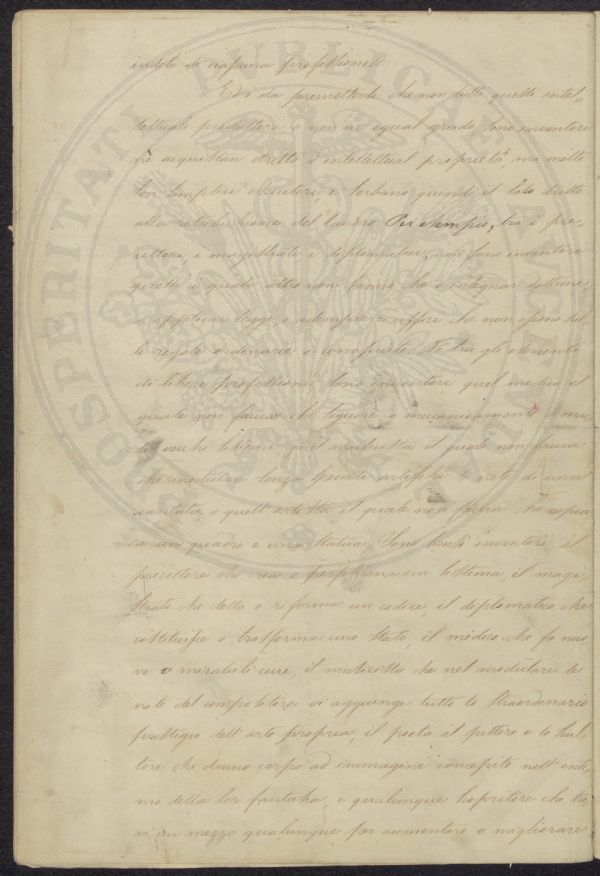 indole di ciascuna professione.
Ed è da premettersi che non tutti questi intel-
lettuali produttori, o non in egual grado, sono inventori
nè acquistan dritto d'intellettual proprietà, ma molti
son semplici esecutori, e serbano quindi il solo dritto
alla retribuzione del lavoro. Per esempio, tra i pre-
cettori, i magistrati e i diplomatici, non sono inventori
quelli i quali altro non fanno che o insegnar dottrine,
o applicar leggi, o adempiere uffici che non escono dal-
le regole ordinarie o conosciute. Nè tra gli esercenti
di libere professioni sono inventori quel medico il
quale non faccia che seguire, o meccanicamente o
vecchi sistemi, quel musicista il quale non faccia
che modulare senza speciale artificio le note di una
cantata, o quell'artista il quale non faccia che copia-
re un quadro e una statua. Sono bensì inventori il
precettore che crea o perfeziona un sistema, il magi-
strato che detta o riforma un codice, il diplomatico che
costituisce o trasforma uno Stato, il medico che fa nuo-
ve o mirabili cure, il musicista che nel modulare le
note del compositore vi aggiunge tutto lo straordinario
prestigio dell'arte propria, il poeta il pittore e lo scul-
tore che danno corpo ad immagini concepite nell'inti-
mo della lor fantasia, e qualunque scopritore che tro-
vi un mezzo qualunque per aumentare o migliorare